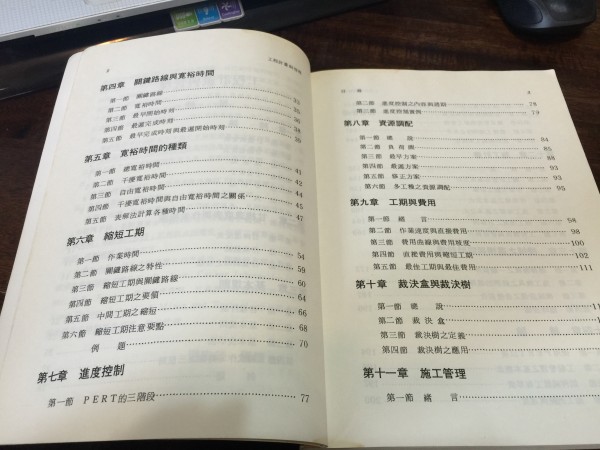 2
第四章 關鍵路線與寬裕時間
第一節 關鍵路線
第二節 寬裕時間
第三節 最早開始時刻 36
第四節 最遲完成時刻 38
第五節 最早完成時刻與最遲開始時刻 39
第五章 寬裕時間的種類
第一節 總寬裕時間 41
第二節 干擾寬裕時間 42
第三節 自由寬裕時間 44
第四節 干擾寬裕時間與自由寬裕時間之關係 45
第五節 表解法計算各種時間 47
第六章 縮短工期
第一節 作業時間 54
第二節 關鍵路線之特性 59
第三節 縮短工期與關鍵路線 60
第四節 縮短工期之要領 64
第五節 中間工期之縮短 66
第六節 縮短工期注意要點 68
例 題 70
第七章 進度控制
第一節 PERT的三階段 77
目 錄 3
第二節 進度控制之內容與過程 78
第三節 進度控制實例 79
第八章 資源調配
第一節 總 說 84
第二節 負荷圖 85
第三節 最早方案 88
第四節 最遲方案 93
第五節 修正方案 93
第六節 多工種之資源調配 95
第九章 工期與費用
第一節 緒 言 98
第二節 作業速度與直接費用 98
第三節 費用曲線與費用坡度 100
第四節 直接費用與縮短工期 102
第五節 最佳工期與最佳費用 111
第十章 裁決盒與裁決樹
第一節 總 說
第二節 裁決盒
第三節 裁決樹之定義
第四節 裁決樹之應用
第十一章 施工管理
第一節 緒 言